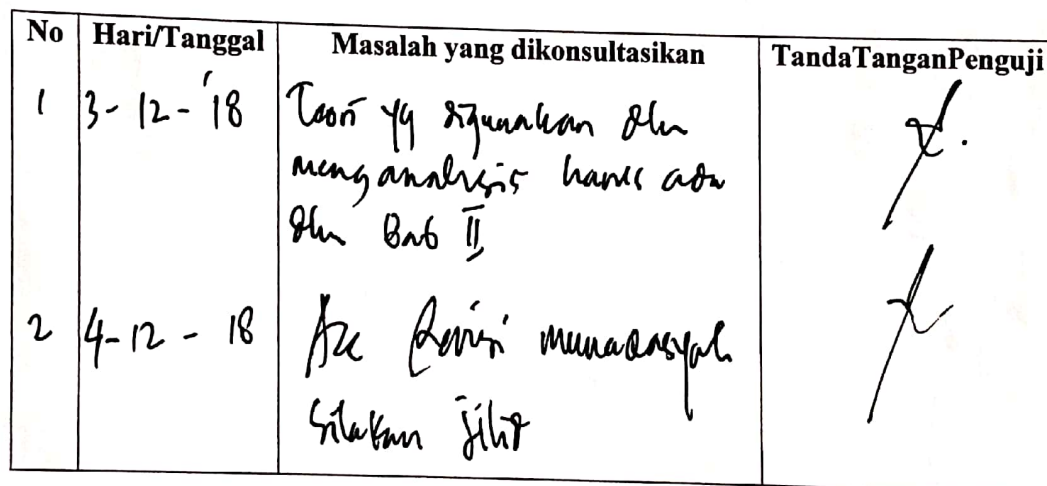 No Hari/Tanggal Masalah yang dikonsultasikan TandaTanganPenguji
1 3-12-'18 Teori yg digunakan dlm
menganalisis harus ada
dlm Bab II
2 4-12-18 Acc Revisi munaqasyah
Silakan jilid